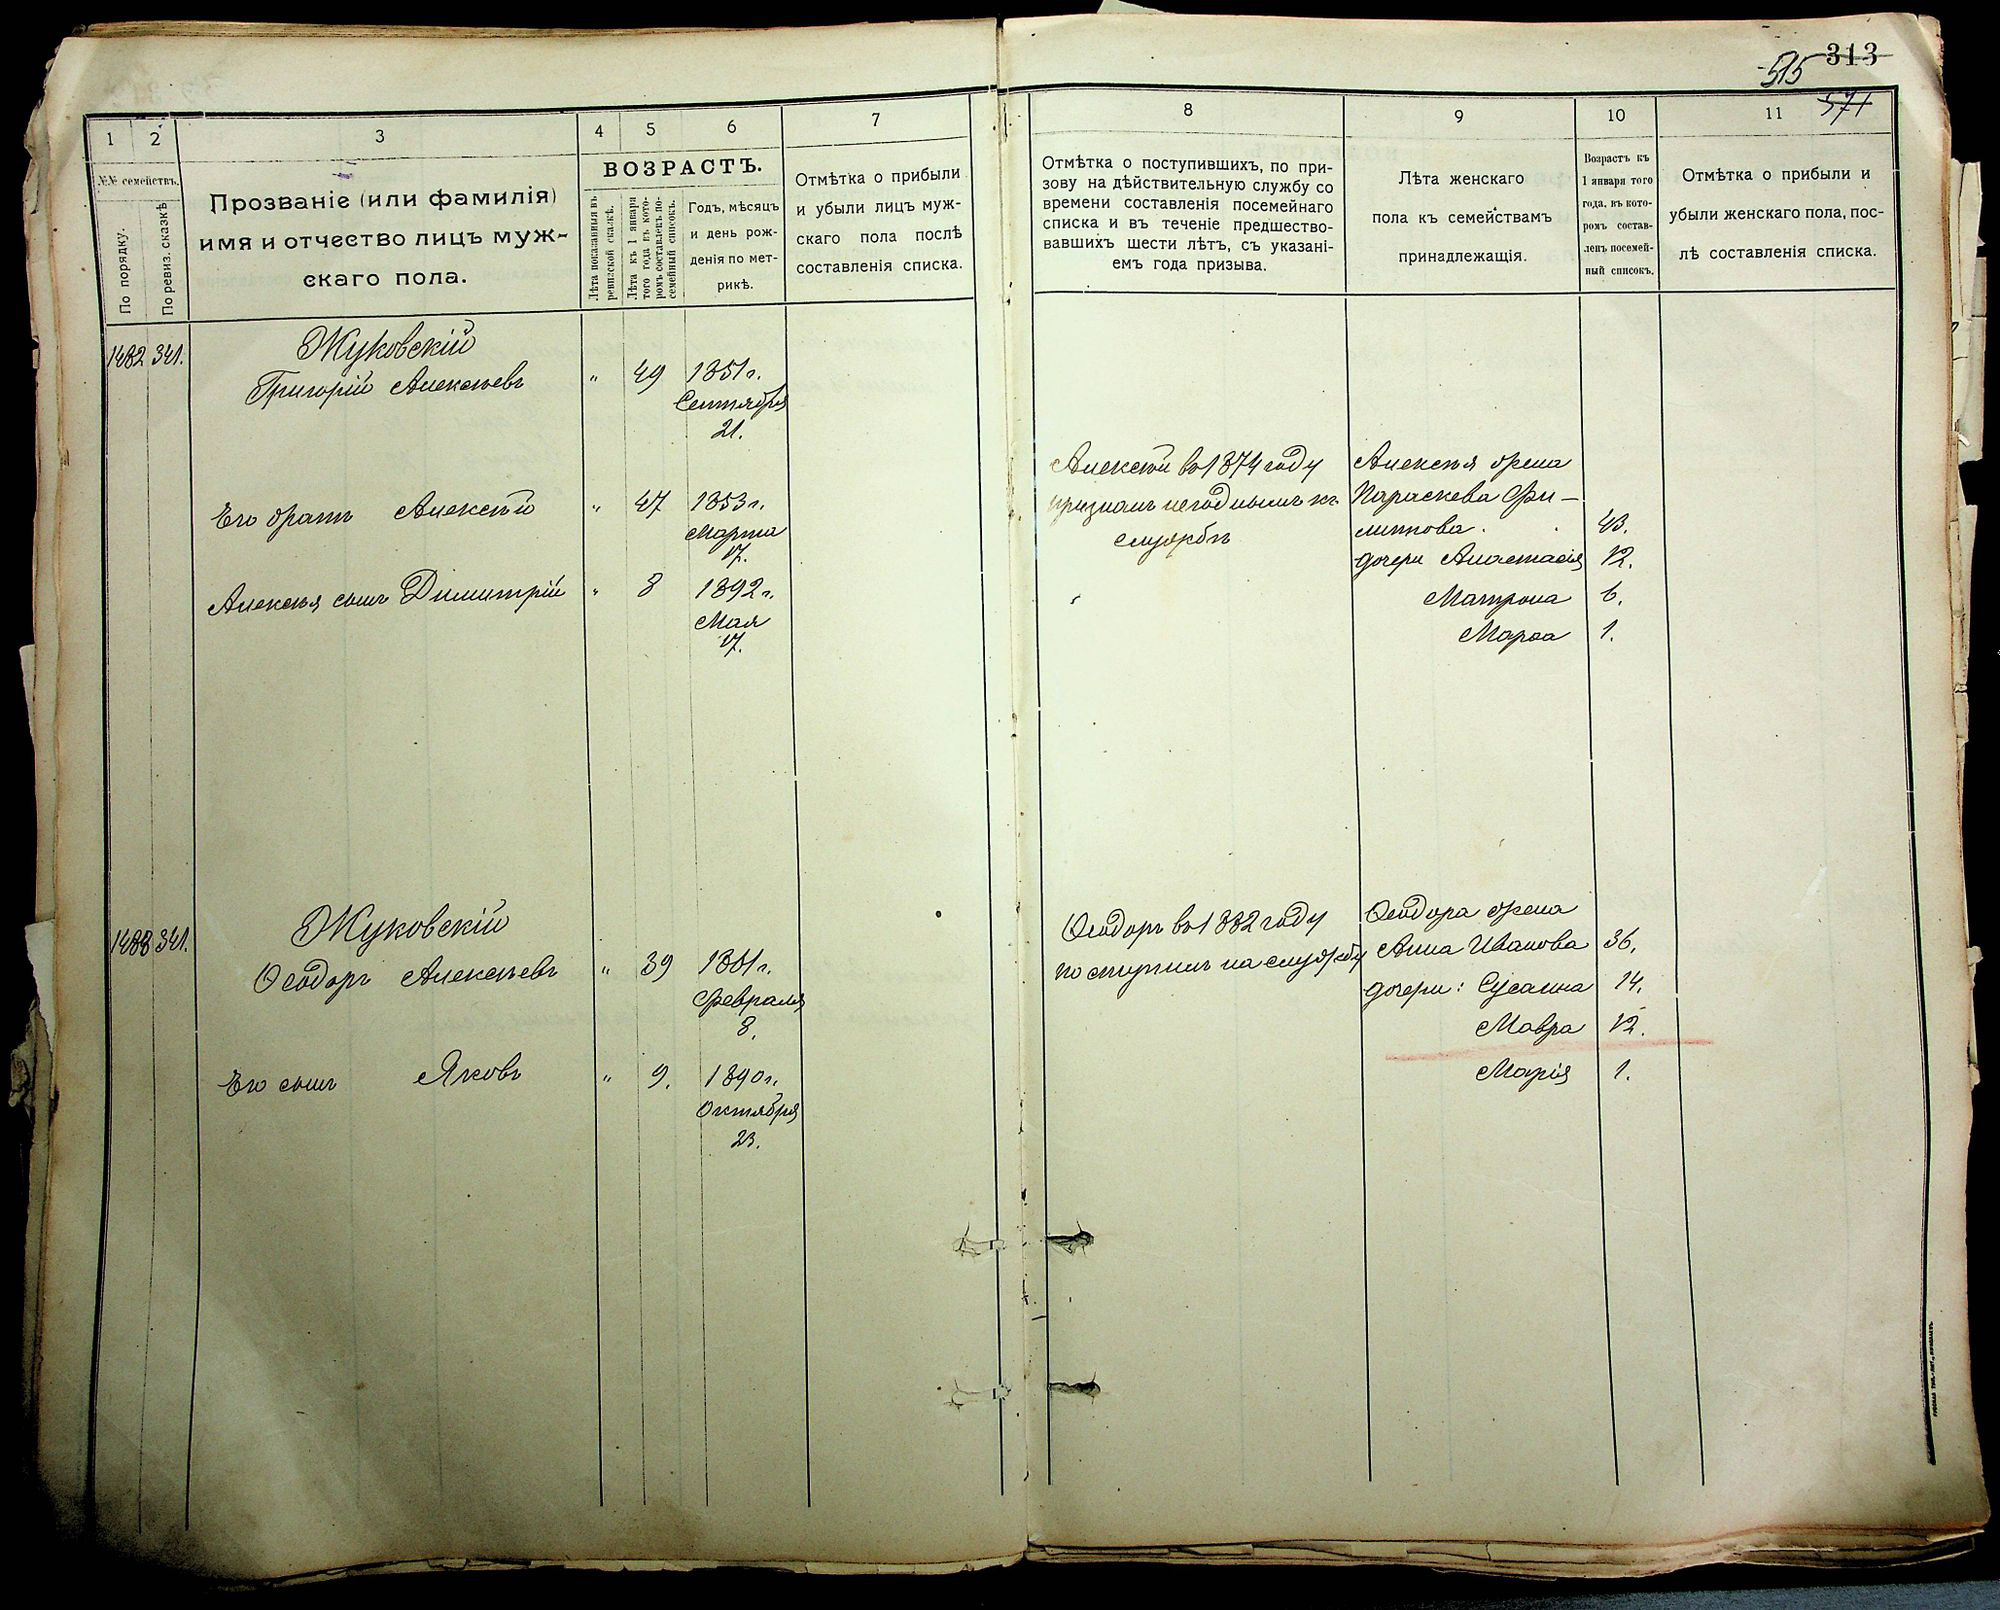 313
515
571
1
2
3
4
5
6
7
8
9
10
11
№№ семействъ.
По порядку.
По ревиз. сказкѣ
Прозваніе (или фамилія)
имя и отчество лицъ муж-
скаго пола.
ВОЗРАСТЪ.
Лѣта показанныя въ
ревизской сказкѣ.
Лѣта къ 1 января
того года въ кото-
ромъ составленъ по-
семейный списокъ.
Годъ, мѣсяцъ
и день рож-
денія по мет-
рикѣ.
Отмѣтка о прибыли
и убыли лицъ муж-
скаго пола послѣ
составленія списка.
Отмѣтка о поступившихъ, по при-
зову на дѣйствительную службу со
времени составленія посемейнаго
списка и въ теченіе предшество-
вавшихъ шести лѣтъ, съ указані-
емъ года призыва.
Лѣта женскаго
пола къ семействамъ
принадлежащія.
Возрастъ къ
1 января того
года, въ кото-
ромъ состав-
ленъ посемей-
ный списокъ.
Отмѣтка о прибыли и
убыли женскаго пола, пос-
лѣ составленія списка.
1482 341.
Жуковскій
Григорій Алексѣевъ " 49 1851 г.
Сентября
21.
Его братъ Алексѣй " 47 1853 г.
Марта
17.
Алексѣя сынъ Димитрій " 8 1892 г.
Мая
17.
Алексѣй въ 1874 году
признанъ негоднымъ къ
службѣ
Алексѣя жена
Параскева Фи-
липпова. 43.
дочери Анастасія 12.
Матрона 6.
Марѳа 1.
1483 341.
Жуковскій
Ѳеодоръ Алексѣевъ " 39 1861 г.
Февраля
8.
Его сынъ Яковъ " 9. 1890 г.
Октября
23.
Ѳеодоръ въ 1882 году
поступилъ на службу
Ѳеодора жена
Анна Иванова 36.
дочери: Сусанна 14.
Мавра 12.
Марія 1.